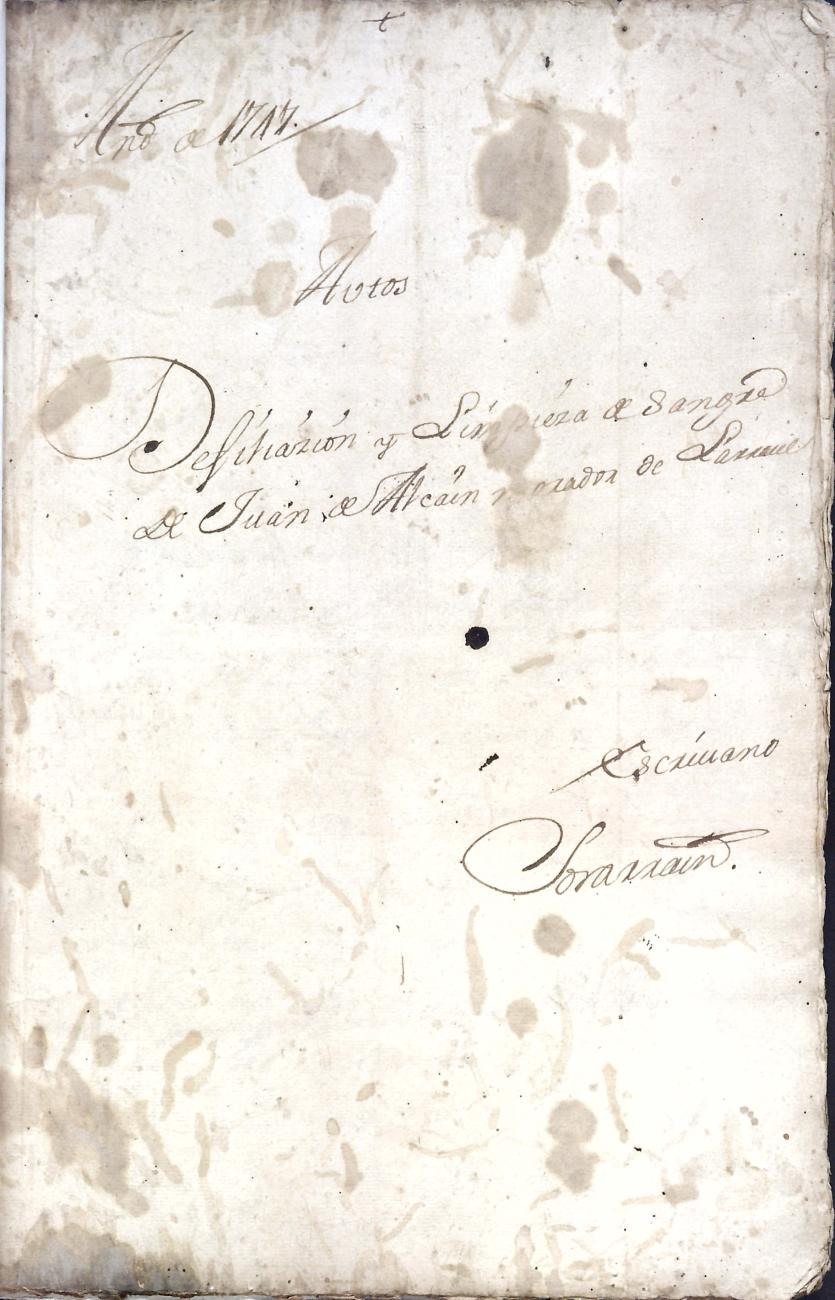 +
Año de 1747.
Autos
De filiazión y Limpieza de Sangre
de Juan de Alcain morador de Larraul
Escriuano
Sorarrain.